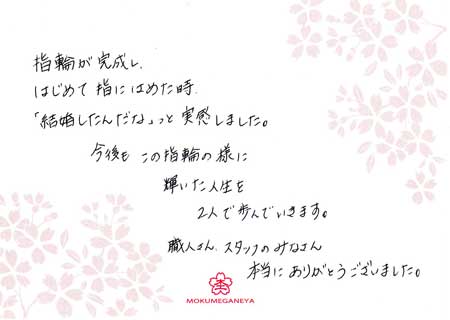 指輪が完成し、
はじめて指にはめた時、
「結婚したんだな」っと実感しました。
今後もこの指輪の様に
輝いた人生を
2人で歩んでいきます。
職人さん、スタッフのみなさん
本当にありがとうございました。
MOKUMEGANEYA